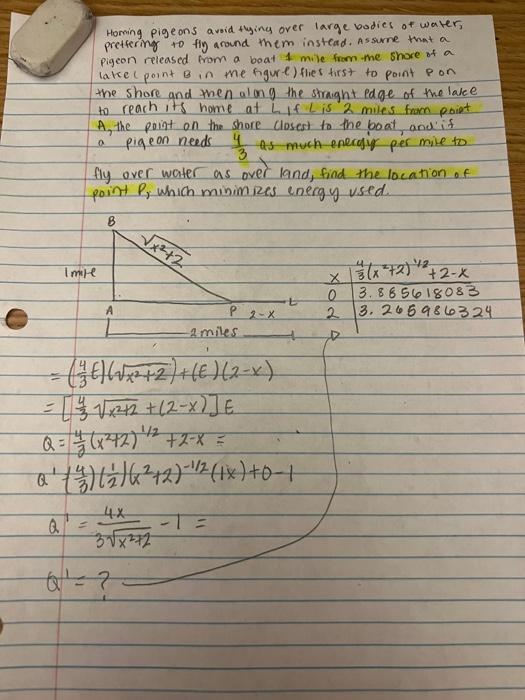 Homing pigeons avoid flying over large bodies of water,
preffering to fly around them instead. Assume that a
pigeon released from a boat 1 mile from the shore of a
lake (point B in the figure) flies first to point P on
the shore and then along the straight edge of the lake
to reach its home at L. If L is 2 miles from point
A, the point on the shore closest to the boat, and if
a pigeon needs 4/3 as much energy per mile to
fly over water as over land, find the location of
point P, which minimizes energy used.
B
√x²+2
1 mile
A P 2-x L
2 miles
x 4/3(x²+2)^1/2+2-x
0 3.885618083
2 3.265986324
= (4/3 E)(√x²+2)+(E)(2-x)
= [4/3 √x²+2 +(2-x)]E
Q = 4/3 (x²+2)^1/2 +2-x =
Q' (4/3)(1/2)(x²+2)^-1/2 (1x)+0-1
Q' = 4x/3√x²+2 -1 =
Q' = ?